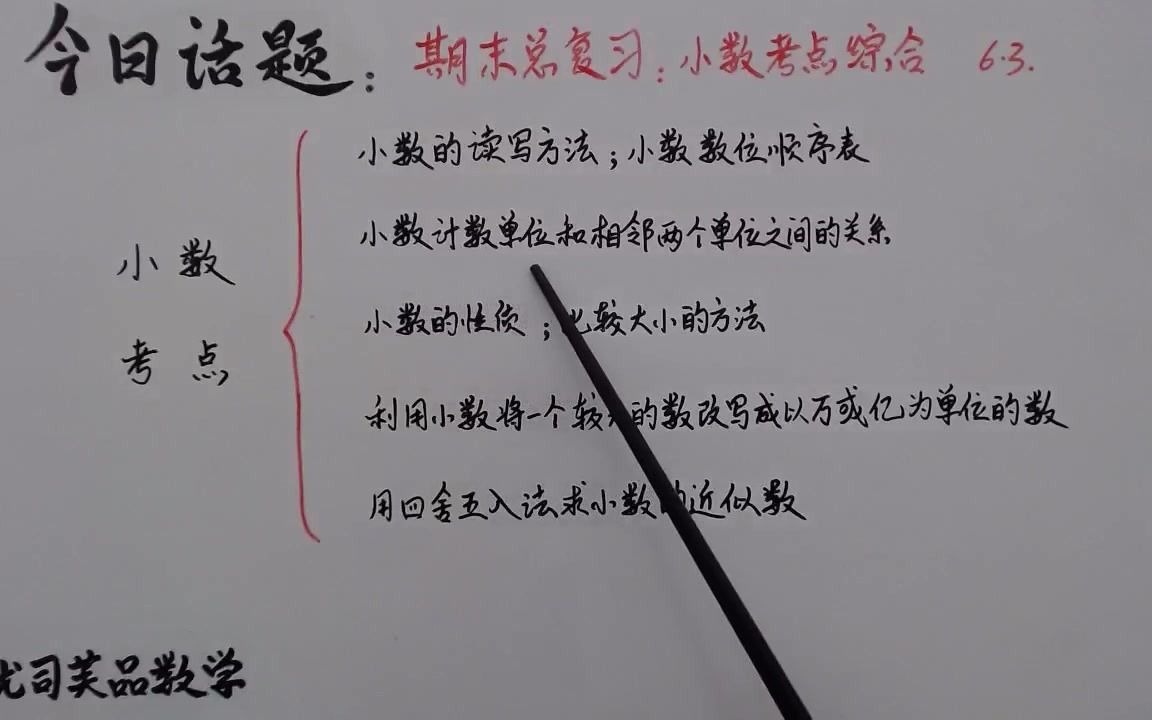 今日话题：期末总复习：小数考点综合 6.3.
小数的读写方法；小数数位顺序表
小数计数单位和相邻两个单位之间的关系
小数
小数的性质；比较大小的方法
考点
利用小数将一个较的数改写成以万或亿为单位的数
用四舍五入法求小数的近似数
司芙品数学